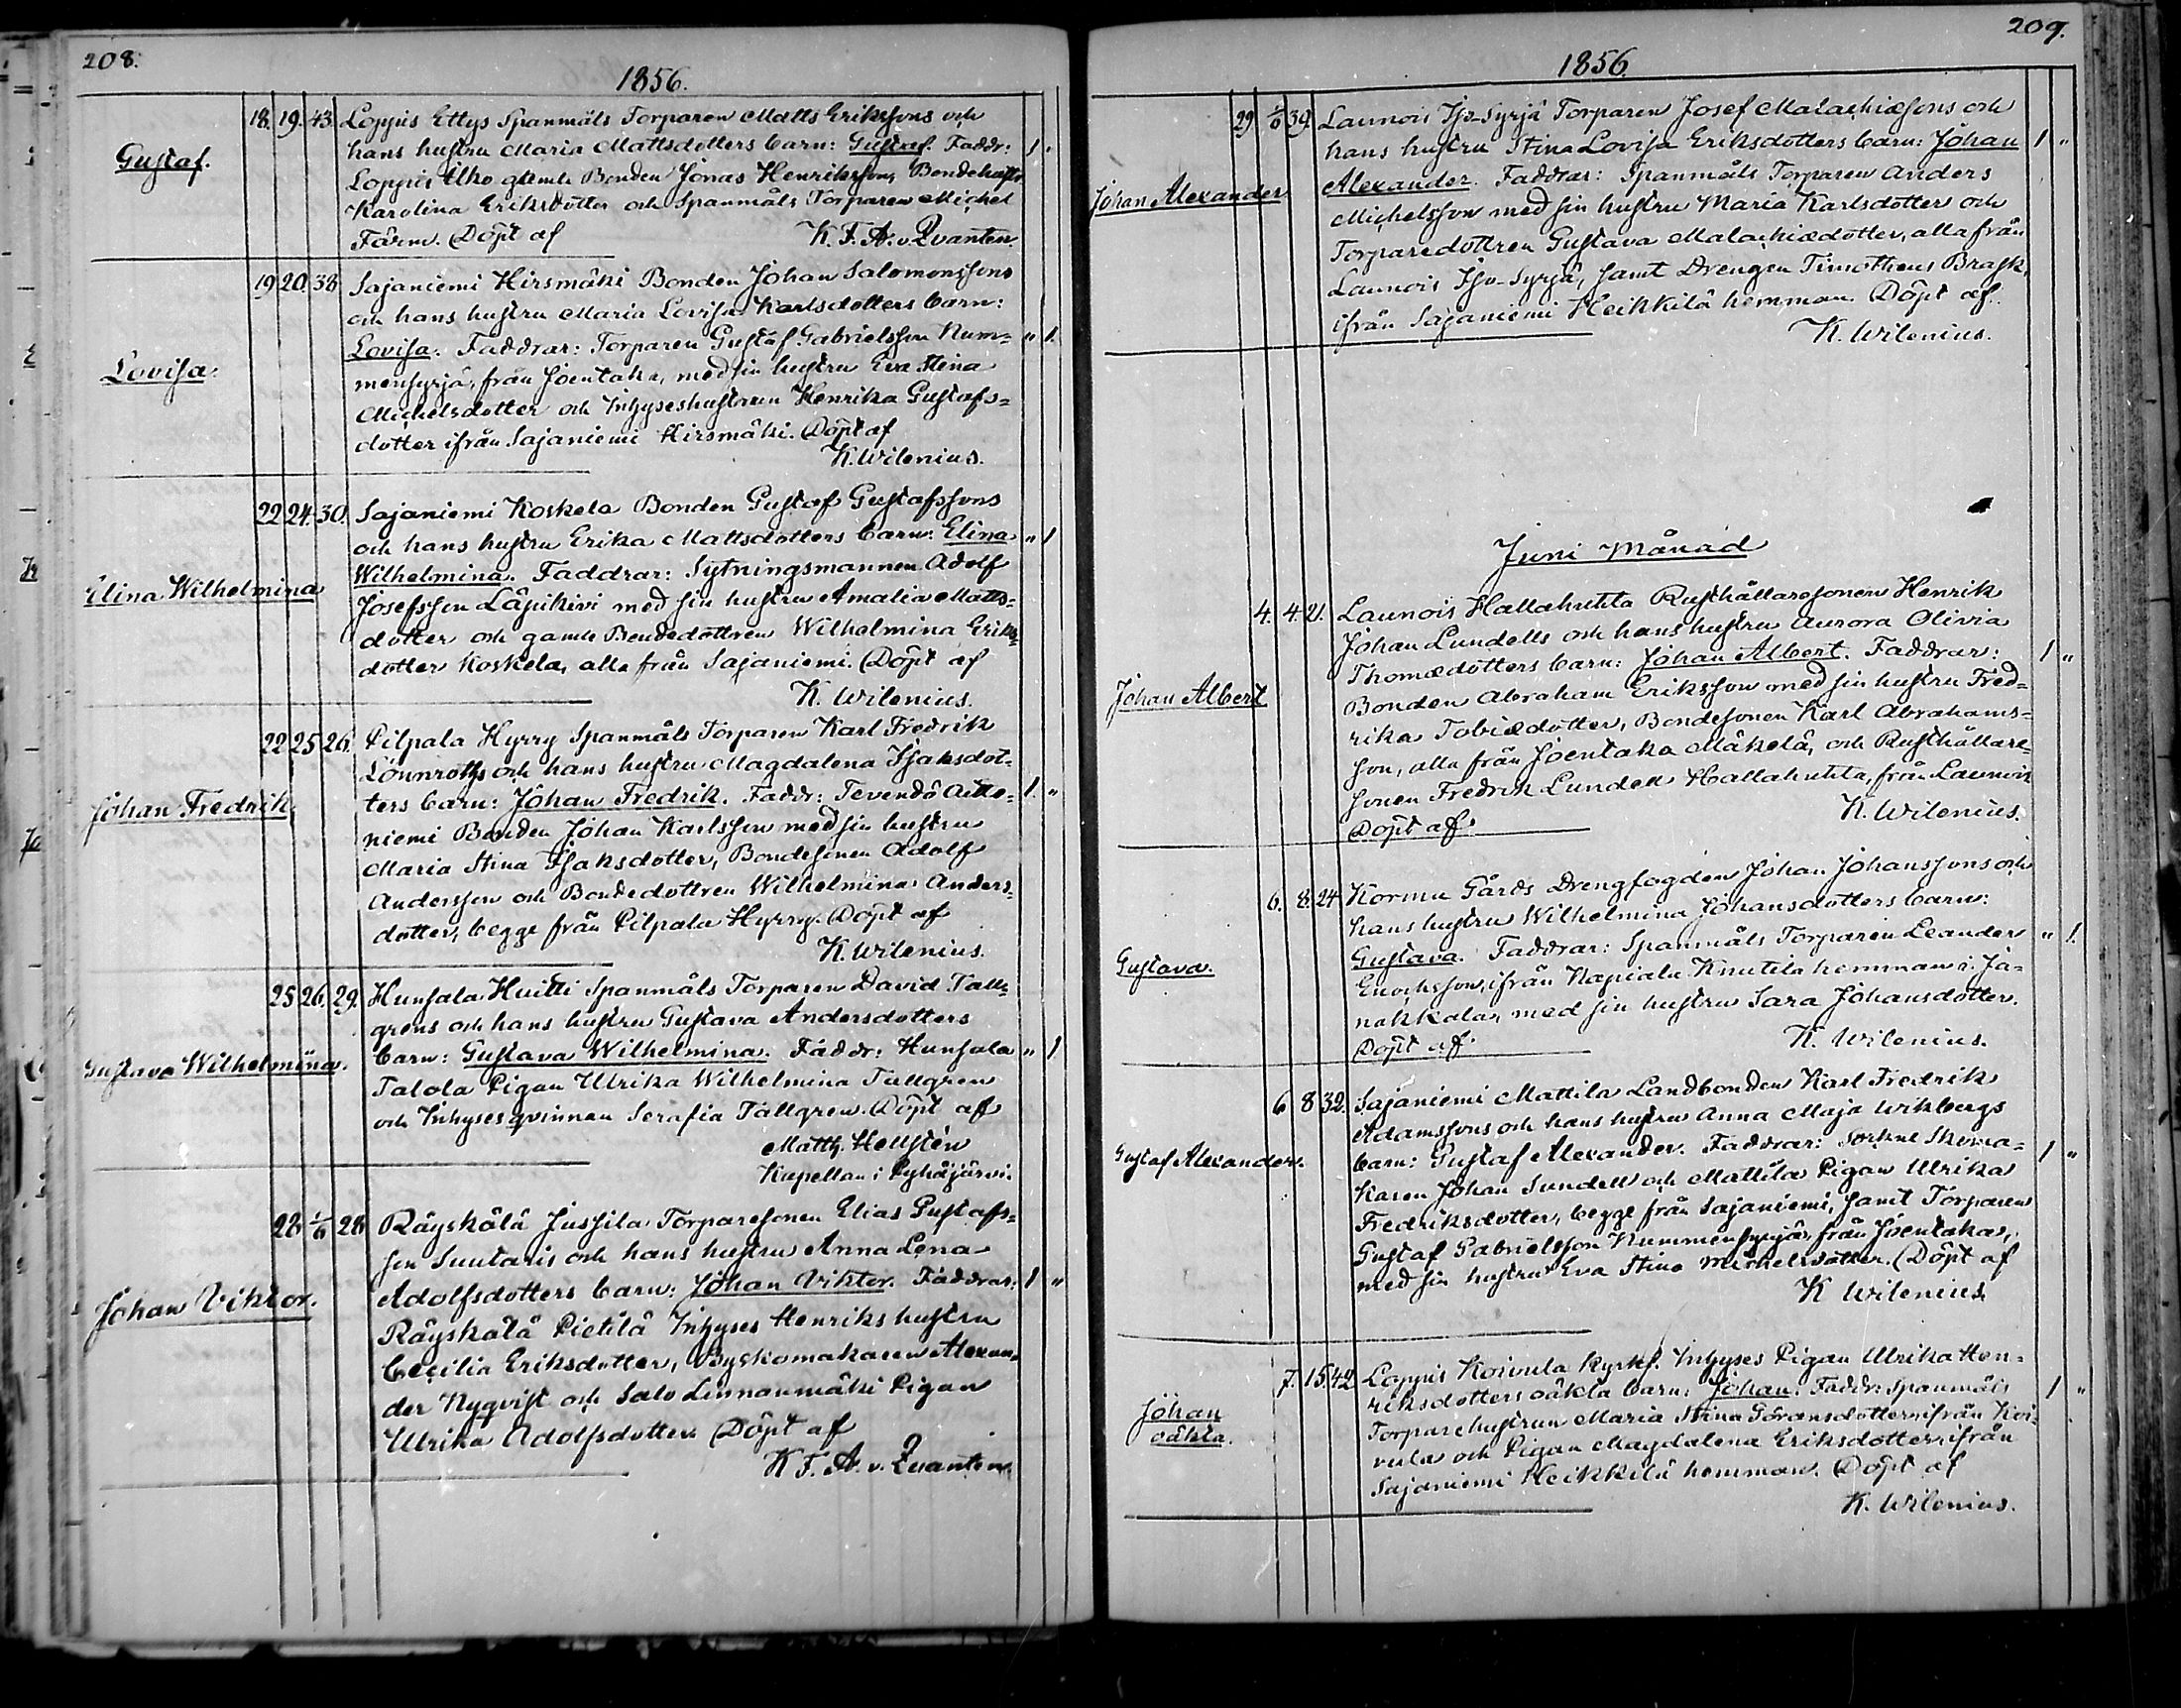 208.
1856.
Gustaf.
18. 19. 43. Loppis Ettys Spanmåls Torparen Matts Erikssons och
hans hustru Maria Mattsdotters barn: Gustaf. Faddr: 1 "
Loppis Uko gamle Bonden Jonas Henriksson, Bondehustr.
Karolina Eriksdotter och Spanmåls Torparen Michel
Färm. Döpt af K. F. A. v. Qvanten.
Lovisa.
19 20. 38 Sajaniemi Hirsmäki Bonden Johan Salomonssons
och hans hustru Maria Lovisa Karlsdotters barn:
Lovisa. Faddrar: Torparen Gustaf Gabrielsson Num= " 1.
mensyrjä, från Joentaka, med sin hustru Eva Stina
Michelsdotter och Inhyseshustrun Henrika Gustafs=
dotter ifrån Sajaniemi Hirsmäki. Döpt af
K. Wilenius.
Elina Wilhelmina
22 24. 30. Sajaniemi Koskela Bonden Gustaf Gustafssons
och hans hustru Erika Mattsdotters barn: Elina " 1
Wilhelmina. Faddrar: Sytningsmannen Adolf
Josefsson Läpikivi med sin hustru Amalia Matts=
dotter och gamle Bondedottren Wilhelmina Eriks=
dotter Koskela, alla från Sajaniemi. Döpt af
K. Wilenius.
Johan Fredrik
22 25 26. Pilpala Hyrry Spanmåls Torparen Karl Fredrik
Lönnroths och hans hustru Magdalena Isaksdot=
ters barn: Johan Fredrik. Faddr: Tevendö Aitto= 1. "
niemi Bonden Johan Karlsson med sin hustru
Maria Stina Isaksdotter, Bondesonen Adolf
Andersson och Bondedottren Wilhelmina Anders=
dotter, begge från Pilpala Hyrry. Döpt af
K. Wilenius.
Gustava Wilhelmina.
25 26. 29. Hunsala Huitti Spanmåls Torparen David Tall=
grens och hans hustru Gustava Andersdotters
barn: Gustava Wilhelmina. Faddr: Hunsala " 1
Talola Pigan Ulrika Wilhelmina Tallgren
och Inhysesqvinnan Serafia Tallgren. Döpt af
Matth. Hellstén
Kapellan i Pyhäjärvi.
Johan Viktor.
28 1/6 28 Räyskälä Jussila Torparesonen Elias Gustafs=
son Suutaris och hans hustru Anna Lena
Adolfsdotters barn: Johan Viktor. Faddrar: 1 "
Räyskälä Pietilä Inhyses Henriks hustru
Cecilia Eriksdotter, Byskomakaren Alexan=
der Nyqvist och Salo Linnanmäki Pigan
Ulrika Adolfsdotter. Döpt af
K. F. A. v. Qvanten.
209.
1856.
Johan Alexander
29 1/6 39. Launois Iso-Syrjä Torparen Josef Malachiæsons och
hans hustru Stina Lovisa Eriksdotters barn: Johan 1 "
Alexander. Faddrar: Spanmåls Torparen Anders
Michelsson med sin hustru Maria Karlsdotter och
Torparedottren Gustava Malachiædotter, alla från
Launois Iso-Syrjä, samt Drengen Timotheus Brask,
ifrån Sajaniemi Heikkilä hemman. Döpt af
K. Wilenius.
Juni Månad
Johan Albert
4. 4. 21. Launois Hallahuhta Rusthållaresonen Henrik
Johan Lundells och hans hustru Aurora Olivia
Thomædotters barn: Johan Albert. Faddrar: 1 "
Bonden Abraham Eriksson med sin hustru Fred=
rika Tobiædotter, Bondesonen Karl Abrahams=
son, alla från Joentaka Mäkelä, och Rusthållare=
sonen Fredrik Lundell Hallahuhta, från Launois
Döpt af K. Wilenius.
Gustava.
6. 8. 24 Kormu Gårds Drengfogden Johan Johanssons och
hans hustru Wilhelmina Johansdotters barn:
Gustava. Faddrar: Spanmåls Torparen Leander " 1.
Enochsson, ifrån Napiala Knutila hemman i Ja=
nakkala, med sin hustru Sara Johansdotter.
Döpt af K. Wilenius.
Gustaf Alexander.
6 8 32. Sajaniemi Mattila Landbonden Karl Fredrik
Adamssons och hans hustru Anna Maja Wikbergs
barn: Gustaf Alexander. Faddrar: Sockne Skoma= 1 "
karen Johan Sundell och Mattila Pigan Ulrika
Fredriksdotter, begge från Sajaniemi, samt Torparen
Gustaf Gabrielsson Nummensyrjä, från Joentaka,
med sin hustru Eva Stina Michelsdotter. Döpt af
K Wilenius.
Johan
oäkta.
7. 15 42 Loppis Koivula kyrkf. Inhyses Pigan Ulrika Hen=
riksdotters oäkta barn: Johan. Faddr: Spanmåls 1 "
Torparehustrun Maria Stina Göransdotter, ifrån Koi=
vula och Pigan Magdalena Eriksdotter, ifrån
Sajaniemi Heikkilä hemman. Döpt af
K. Wilenius.